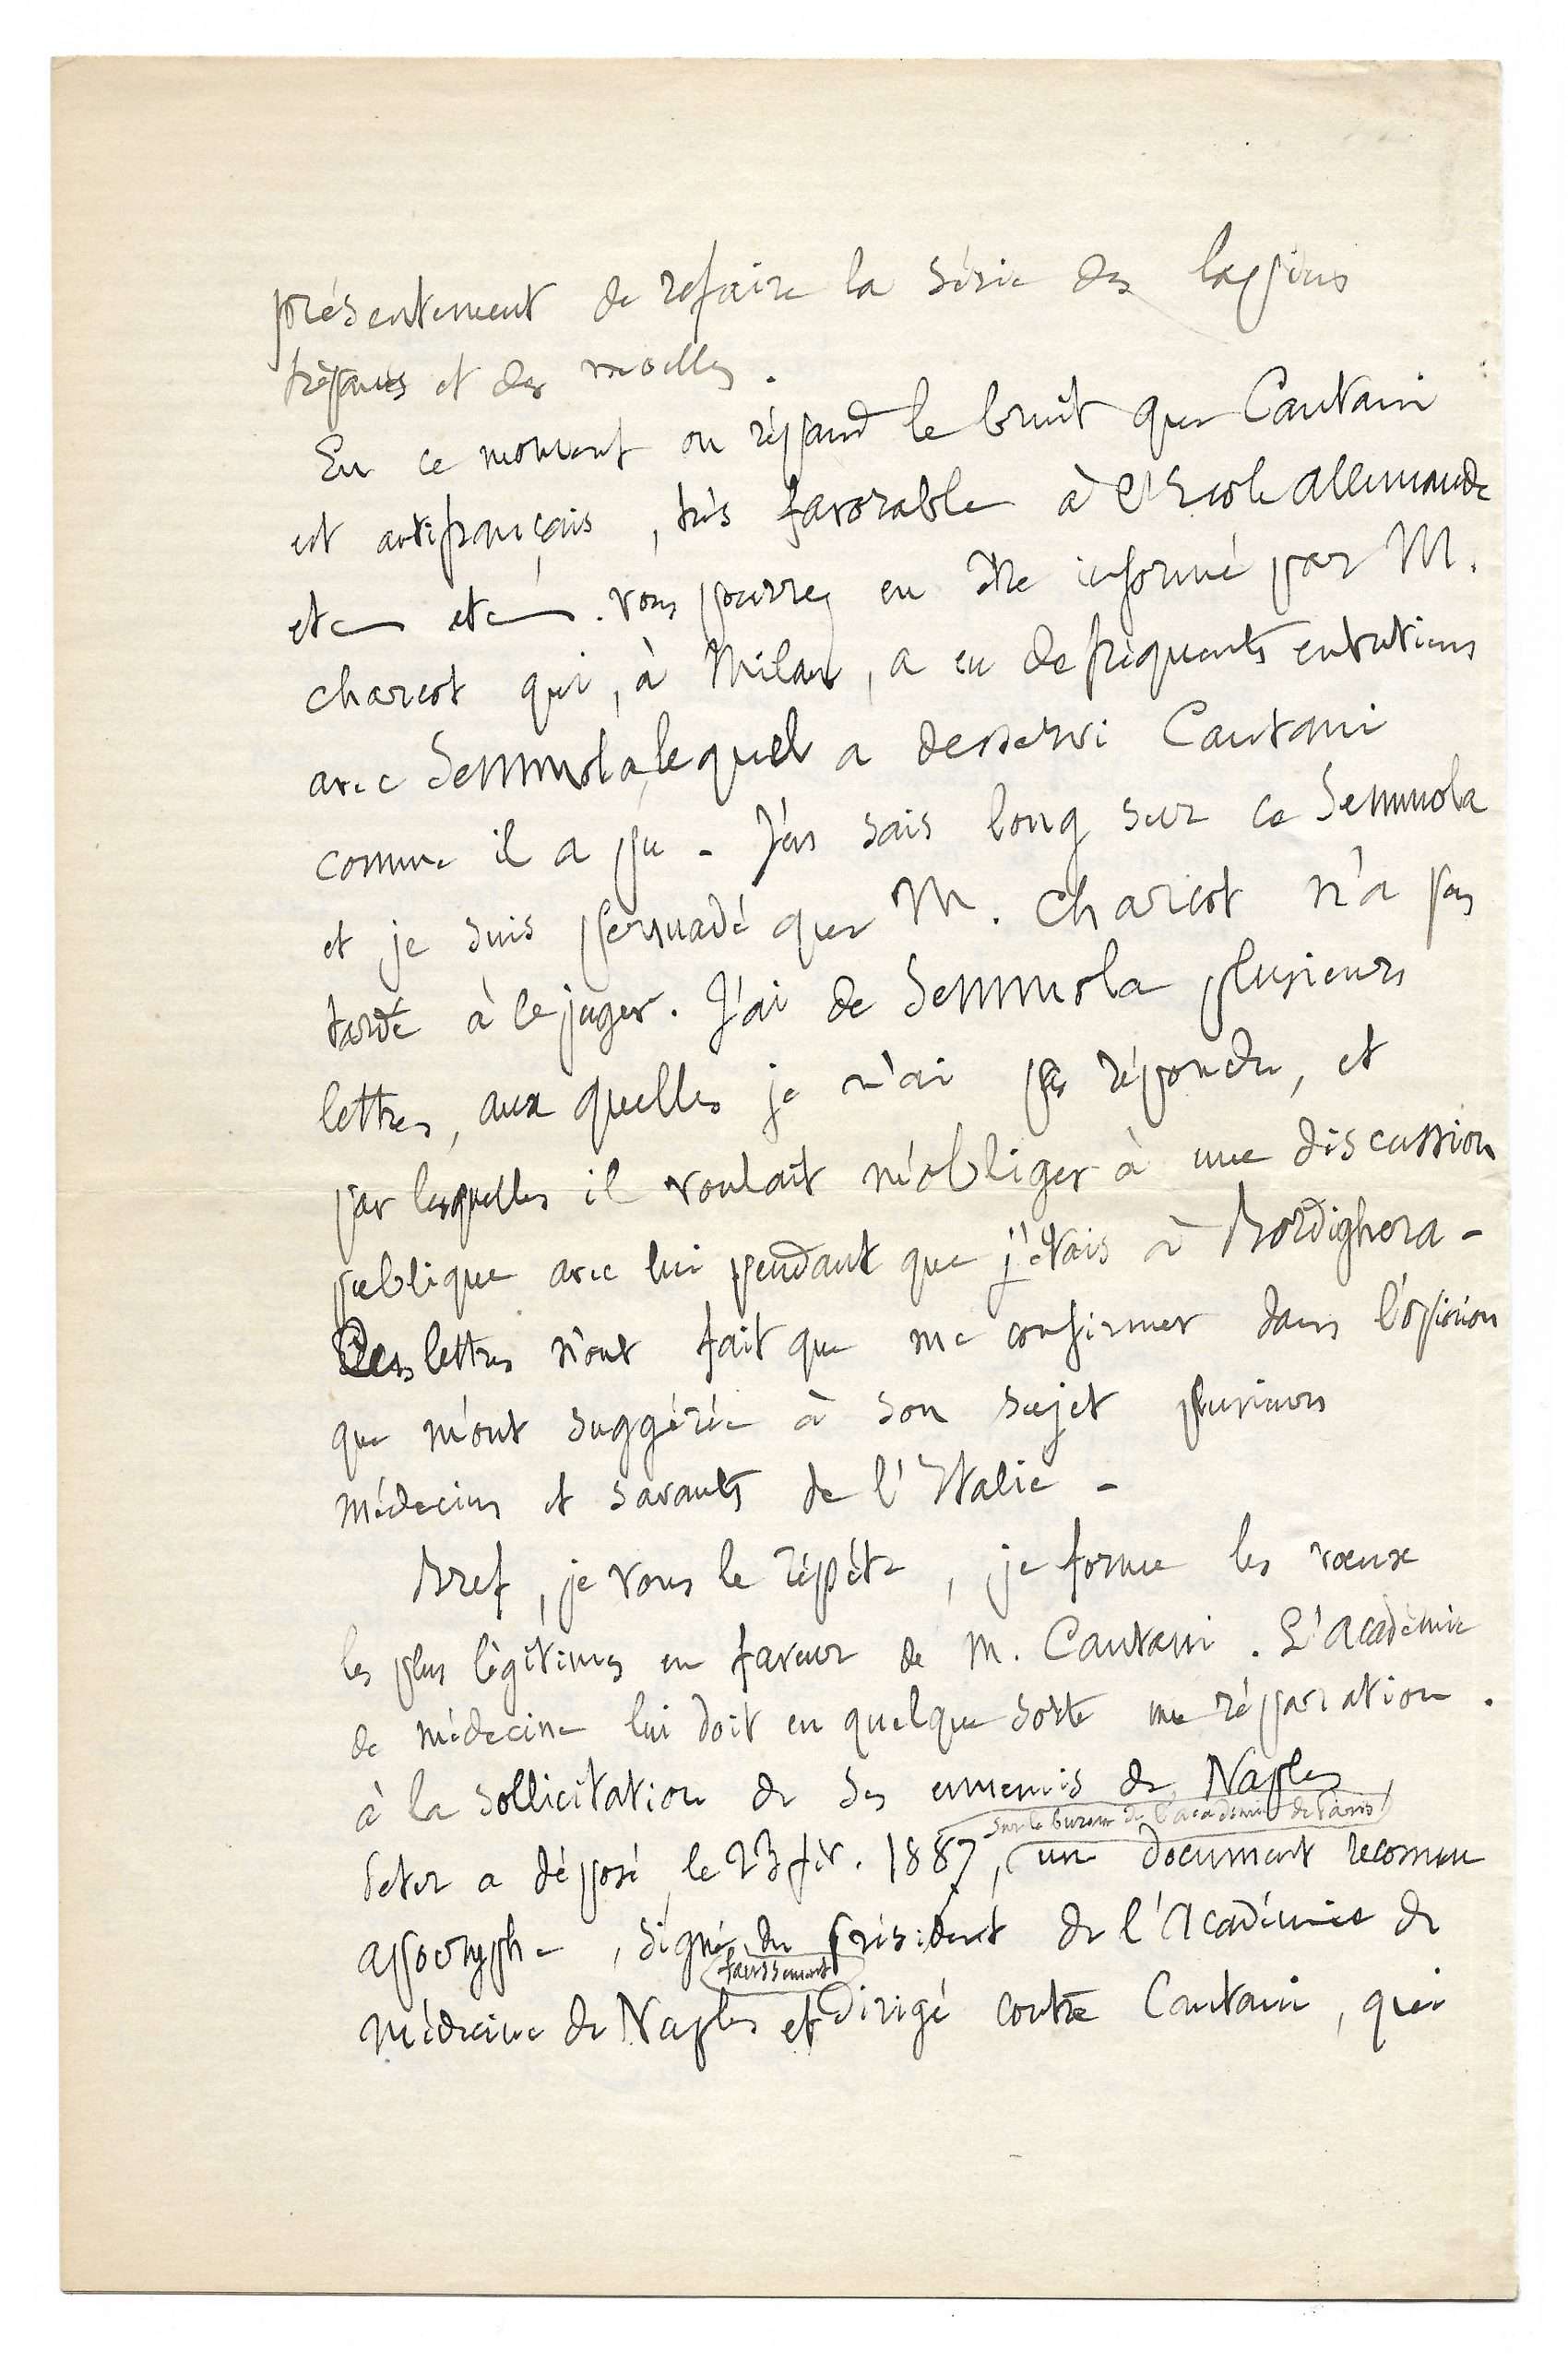 présentement de refaire la série des lapins
trépanés et des moelles.
En ce moment on répand le bruit que Cantani
est antifrançais, très favorable à l'Ecole allemande
etc etc. Vous pourrez en être informé par M.
Charcot qui, à Milan, a eu de fréquents entretiens
avec Semmola, lequel a desservi Cantani
comme il a pu - J'en sais long sur ce Semmola
et je suis persuadé que M. Charcot n'a pas
tardé à le juger. J'ai de Semmola plusieurs
lettres, aux quelles je n'ai pas répondu, et
par lesquelles il voulait m'obliger à une discussion
publique avec lui pendant que j'étais à Bordighera -
Ces lettres n'ont fait que me confirmer dans l'opinion
que m'ont suggérée à son sujet plusieurs
médecins et savants de l'Italie -
Bref, je vous le répète, je forme les vœux
les plus légitimes en faveur de M. Cantani. L'académie
de médecine lui doit en quelque sorte une réparation.
à la sollicitation de ses ennemis de Naples,
sur le bureau de l'académie de Paris
Peter a déposé, le 23 fév. 1887, un document reconnu
apocryphe, signé du Président de l'Académie de
faussement
médecine de Naples et dirigé contre Cantani, qui